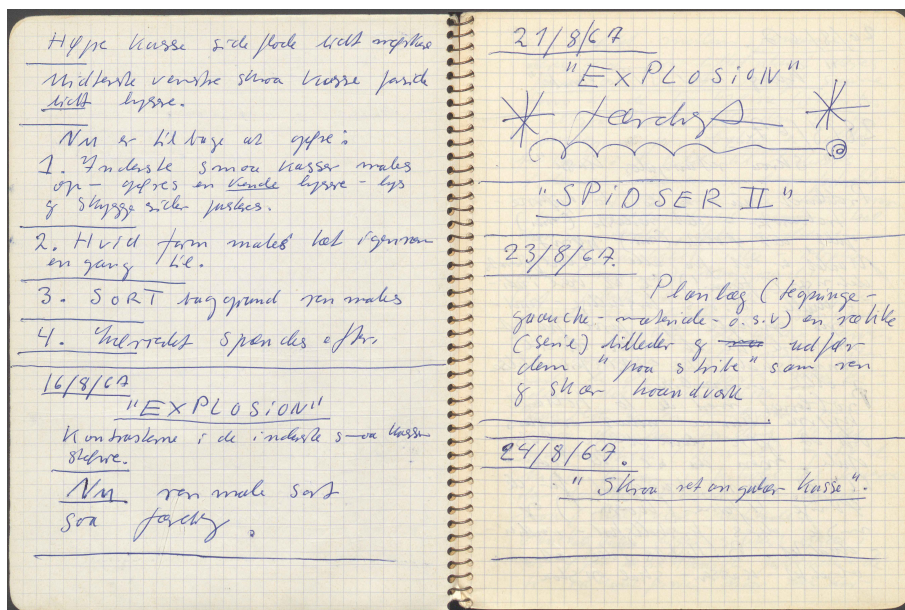 Hype Kasse side flode lidt mørkere
Midterste venstre smaa Kasse forside
lidt lysere.
Nu er tilbage at gøre:
1. Inderste smaa Kasser males
op - gøres en Kende lysere - lys
og skygge sider justeres.
2. Hvid form males let igennem
en gang til.
3. SORT baggrund ren males
4. Lærredet spændes efter.
16/8/67
"EXPLOSION"
Kontrasterne i de inderste smaa Kasser
større.
Nu ren male sort
saa færdig.
21/8/67
"EXPLOSION"
færdigt
"SPIDSER II"
23/8/67.
Planlæg (tegninge-
gouache - materiale - o.s.v) en række
(serie) billeder og udfør
dem "paa stribe" som ren
og skær haandværk
24/8/67.
"Skraa retangulær Kasse".